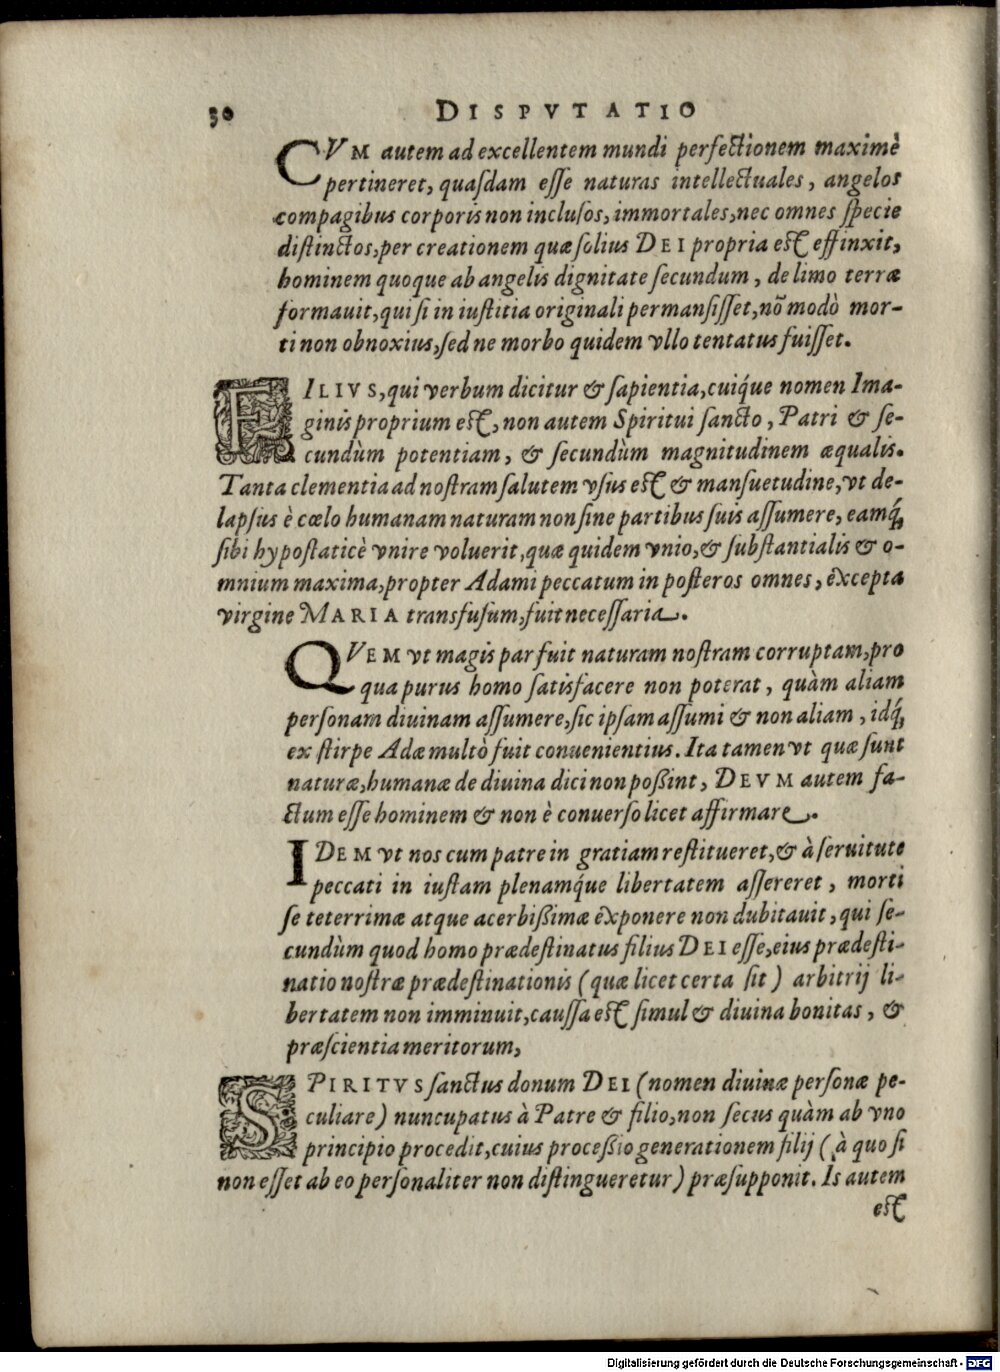 30 DISPVTATIO
CVM autem ad excellentem mundi perfectionem maximè
pertineret, quasdam esse naturas intellectuales, angelos
compagibus corporis non inclusos, immortales, nec omnes specie
distinctos, per creationem quæ solius DEI propria est effinxit,
hominem quoque ab angelis dignitate secundum, de limo terræ
formauit, qui si in iustitia originali permansisset, nõ modò mor-
ti non obnoxius, sed ne morbo quidem vllo tentatus fuisset.
FILIVS, qui verbum dicitur & sapientia, cuiq́ue nomen Ima-
ginis proprium est, non autem Spiritui sancto, Patri & se-
cundùm potentiam, & secundùm magnitudinem æqualis.
Tanta clementia ad nostram salutem vsus est & mansuetudine, vt de-
lapsus è cœlo humanam naturam non sine partibus suis assumere, eamq́;
sibi hypostaticè vnire voluerit, quæ quidem vnio, & substantialis & o-
mnium maxima, propter Adami peccatum in posteros omnes, excepta
virgine MARIA transfusum, fuit necessaria.
QVEM vt magis par fuit naturam nostram corruptam, pro
qua purus homo satisfacere non poterat, quàm aliam
personam diuinam assumere, sic ipsam assumi & non aliam, idq́;
ex stirpe Adæ multò fuit conuenientius. Ita tamen vt quæ sunt
naturæ, humanæ de diuina dici non poßint, DEVM autem fa-
ctum esse hominem & non è conuerso licet affirmare.
IDEM vt nos cum patre in gratiam restitueret, & à seruitute
peccati in iustam plenamq́ue libertatem assereret, morti
se teterrimæ atque acerbißimæ exponere non dubitauit, qui se-
cundùm quod homo prædestinatus filius DEI esse, eius prædesti-
natio nostræ prædestinationis (quæ licet certa sit) arbitrij li-
bertatem non imminuit, caussa est simul & diuina bonitas, &
præscientia meritorum,
SPIRITVS sanctus donum DEI (nomen diuinæ personæ pe-
culiare) nuncupatus à Patre & filio, non secus quàm ab vno
principio procedit, cuius proceßio generationem filij (à quo si
non esset ab eo personaliter non distingueretur) præsupponit. Is autem
est
Digitalisierung gefördert durch die Deutsche Forschungsgemeinschaft - DFG